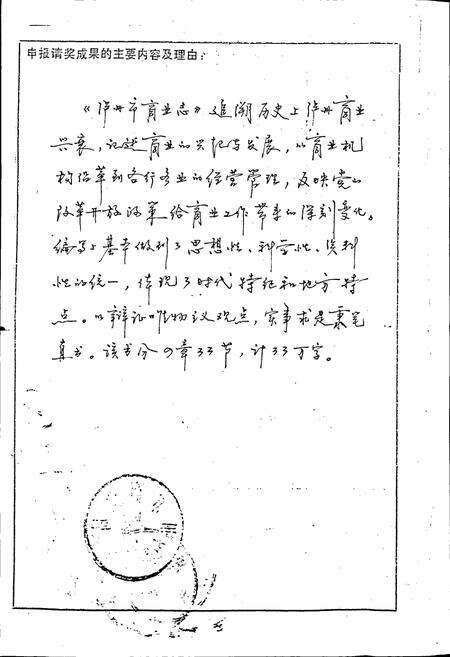 申报请奖成果的主要内容及理由：
《泸州市商业志》追溯历史上泸州商业
兴衰，记述商业的兴起与发展，从商业机
构沿革到各行各业的经营管理，反映党的
改革开放政策给商业工作带来的深刻变化。
编写上基本做到了思想性、科学性、资料
性的统一，体现了时代特征和地方特
点。以辩证唯物主义观点，实事求是秉笔
直书。该书分9章33节，计33万字。